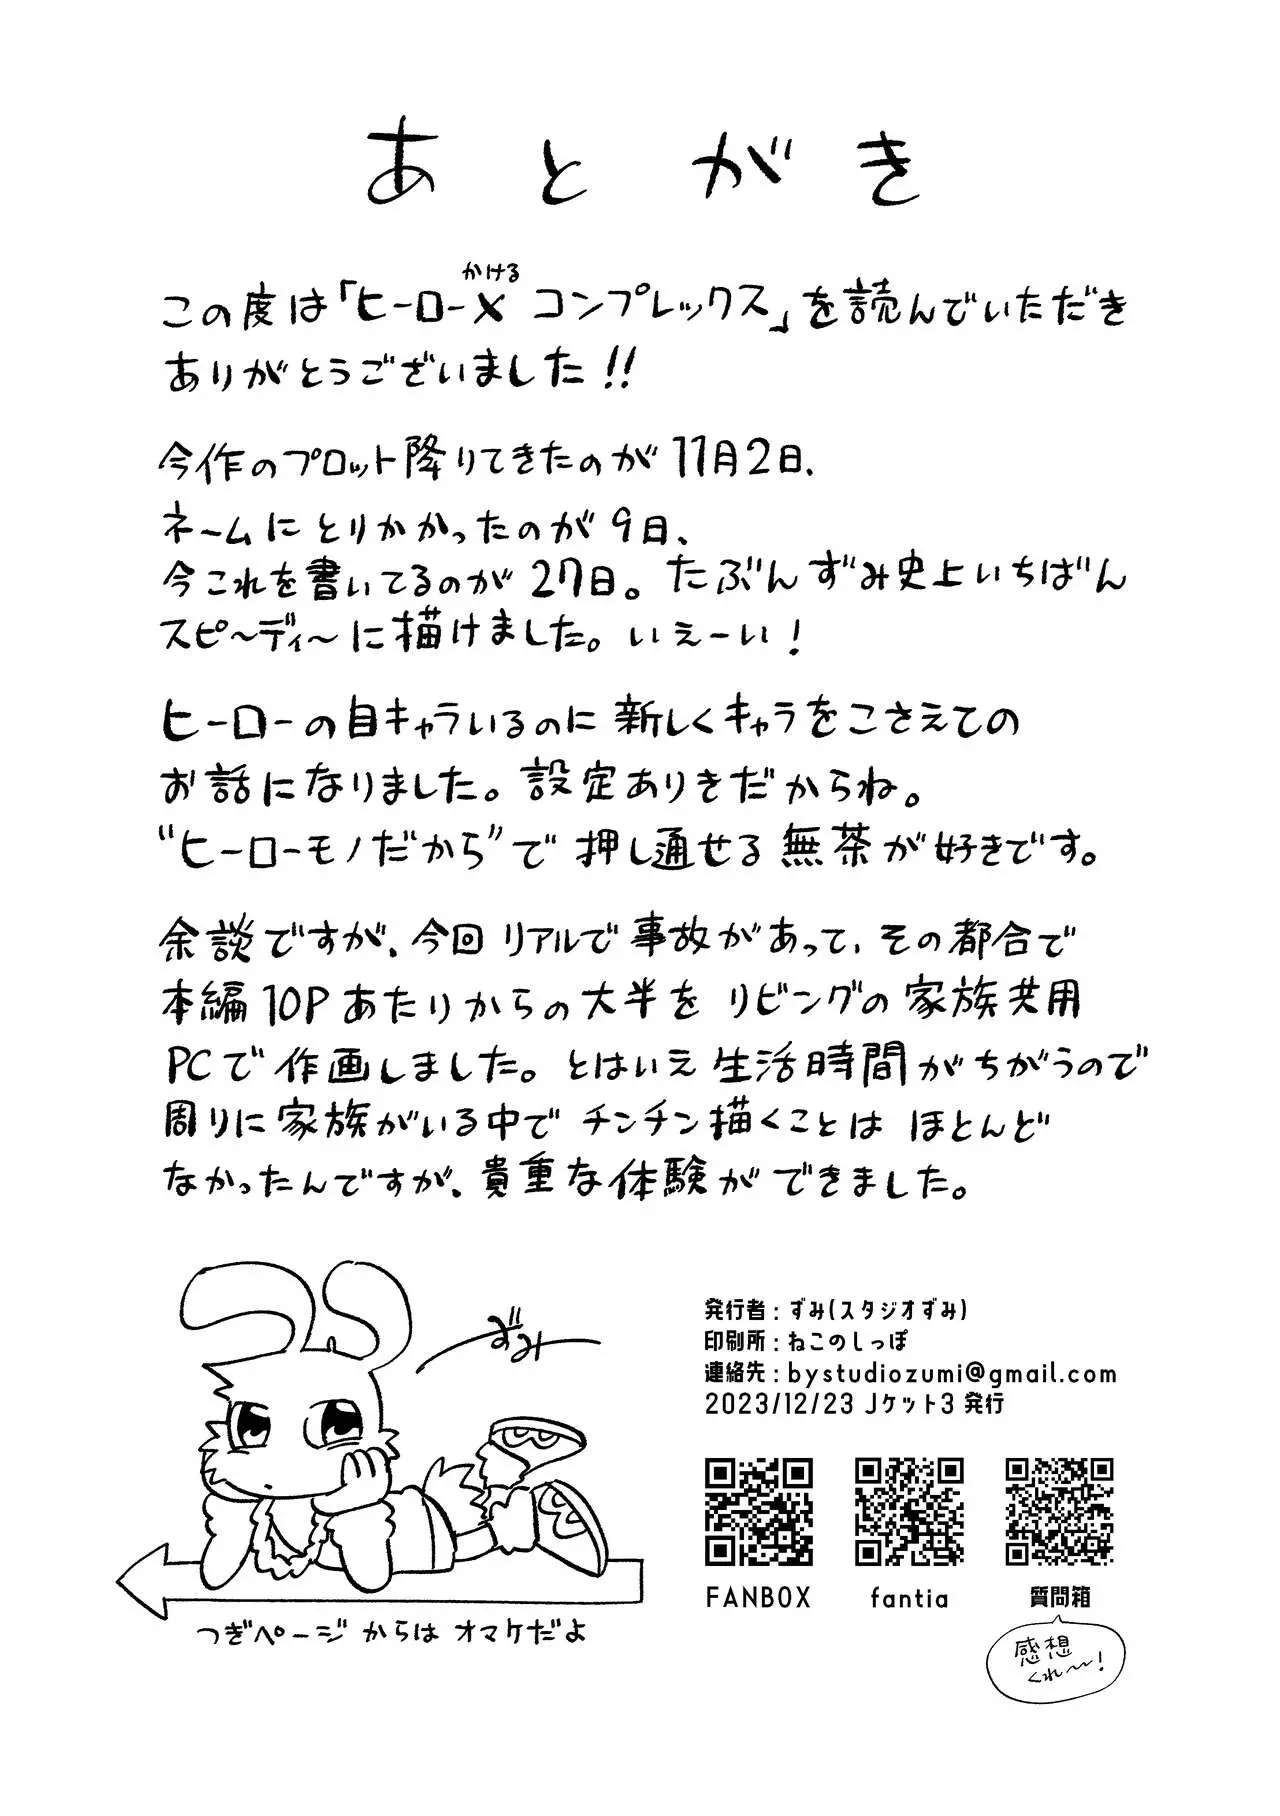 あとがき
かける
この度は「ヒーロー×コンプレックス」を読んでいただき
ありがとうございました!!
今作のプロット降りてきたのが11月2日、
ネームにとりかかったのが9日、
今これを書いてるのが27日。たぶんずみ史上いちばん
スピ〜ディ〜に描けました。いえーい!
ヒーローの自キャラいるのに新しくキャラをこさえての
お話になりました。設定ありきだからね。
“ヒーローモノだから”で押し通せる無茶が好きです。
余談ですが、今回リアルで事故があって、その都合で
本編10Pあたりからの大半をリビングの家族共用
PCで作画しました。とはいえ生活時間がちがうので
周りに家族がいる中でチンチン描くことはほとんど
なかったんですが、貴重な体験ができました。
ずみ
つぎページからはオマケだよ
発行者:ずみ(スタジオずみ)
印刷所:ねこのしっぽ
連絡先:bystudiozumi@gmail.com
2023/12/23 Jケット3 発行
FANBOX
fantia
質問箱
感想
くれ〜!